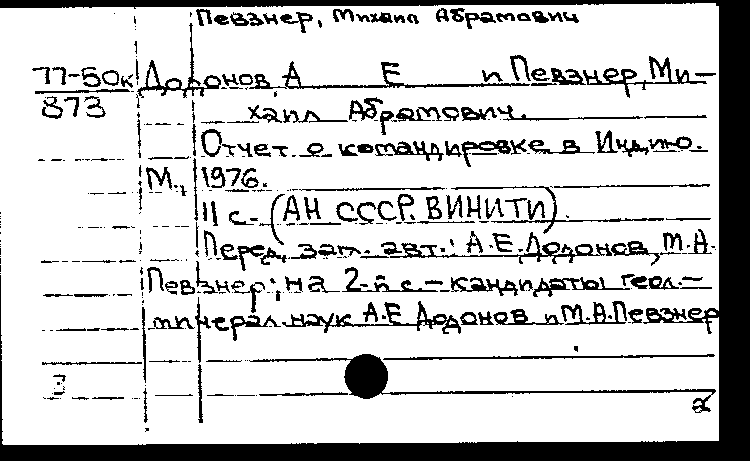 Певзнер, Михаил Абрамович
77-50к Додонов, А Е и Певзнер, Ми-
873 хаил Абрамович.
Отчет о командировке в Индию.
М., 1976.
11 с. (АН СССР. ВИНИТИ).
Перед. заг. авт.: А.Е. Додонов, М.А.
Певзнер; на 2-й с. - кандидаты геол.-
минерал. наук А.Е Додонов и М.А. Певзнер